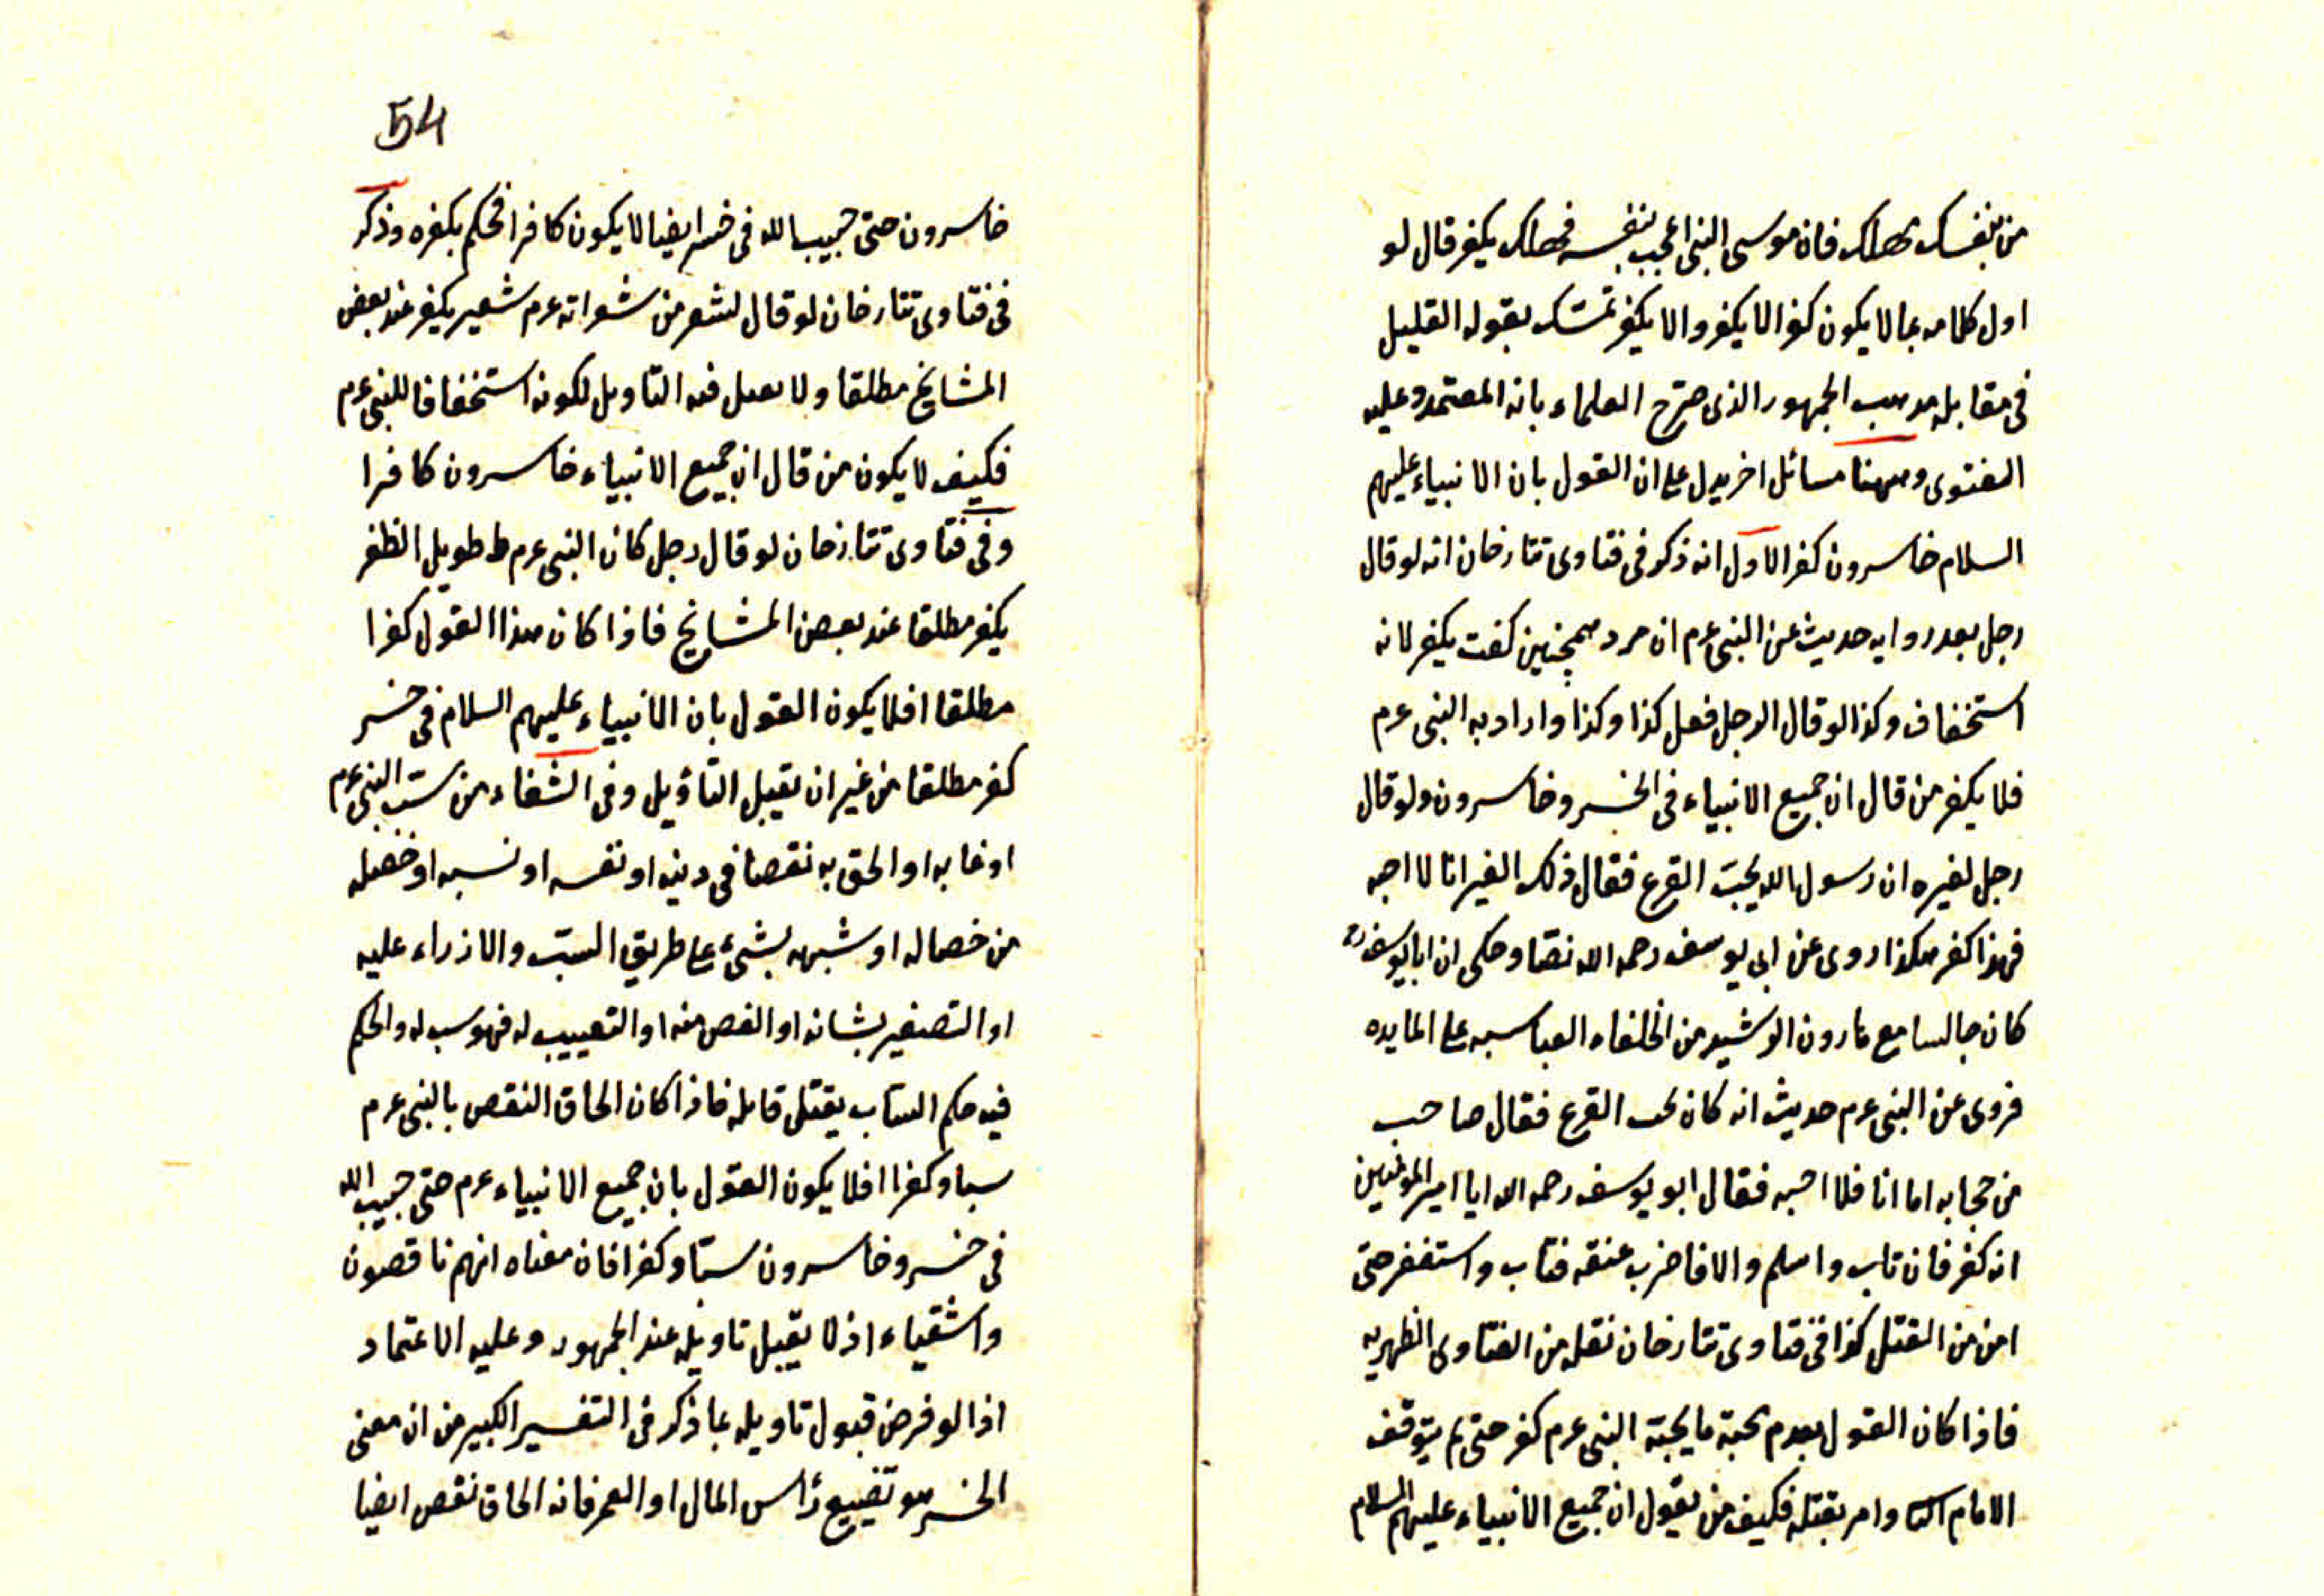 من بنفسك تهلك فان موسى النبي اعجب بنفسه فهلك يكفر قال لو
اول كلامه بما لا يكون كفرا لا يكفر والا يكفر تمسك بقوله القليل
في مقابله مذهب الجمهور الذى صرّح العلماء بانه المعتمد وعليه
الفتوى وههنا مسائل اخر يدل على ان القول بان الانبياء عليهم
السلام خاسرون كفر الاول انه ذكر في فتاوى تتارخان انه لو قال
رجل بعد روايه حديث عن النبي عرم ان مرد همچنين كفت يكفر لانه
استخفاف وكذا لو قال الرجل فعل كذا وكذا واراد به النبي عرم
فلا يكفر من قال ان جميع الانبياء في الخسر وخاسرون ولو قال
رجل لغيره ان رسول الله يحبّ القرع فقال ذلك الغير انا لا احبه
فهذا كفر هكذا روى عن ابى يوسف رحمه الله نصّا وحكى ان ابا يوسف رح
كان جالسا مع هارون الرشيد من الخلفاء العباسيه على المايده
فروى عن النبي عرم حديث انه كان يحب القرع فقال صاحب
من حجابه اما انا فلا احبه فقال ابو يوسف رحمه الله ايا امير المؤمنين
انه كفر فان تاب واسلم والا فاضرب عنقه فتاب واستغفر حتى
امن من القتل كذا في فتاوى تتارخان نقله من الفتاوى الظهريه
فاذا كان القول بعدم محبة ما يحبّه النبي عرم كفر حتى لم يتوقف
الامام وامر بقتله فكيف من يقول ان جميع الانبياء عليهم السلام
54
خاسرون حتى حبيب الله في خسر ايضا لا يكون كافرا فحكم بكفره وذكر
في فتاوى تتارخان لو قال لشعر من شعراته عرم شعير يكفر عند بعض
المشايخ مطلقا ولا يعبل فيه التاويل لكونه استخفافا للنبي عرم
فكيف لا يكون من قال ان جميع الانبياء خاسرون كافرا
وفي فتاوى تتارخان لو قال رجل كان النبي عرم طويل الظفر
يكفر مطلقا عند بعض المشايخ فاذا كان هذا القول كفرا
مطلقا افلا يكون القول بان الانبياء عليهم السلام في خسر
كفر مطلقا من غير ان يقبل التأويل وفي الشفاء من سبّ النبي عرم
او عابه او الحق به نقصا في دينه او نفسه او نسبه او خصله
من خصاله او شبهه بشىء على طريق السبّ والازراء عليه
او التصغير بشانه او الغص منه او التعييب له فهو سب له والحكم
فيه حكم السّاب يقتل قايله فاذا كان الحاق النقص بالنبي عرم
سبا وكفرا افلا يكون القول بان جميع الانبياء عرم حتى حبيب الله
في خسر وخاسرون سبّا وكفرا فان معناه انهم ناقصون
واشقياء اذ لا يقبل تاويله عند الجمهور وعليه الاعتماد
اذا لو فرض قبول تاويله بما ذكر في التفسير الكبير من ان معنى
الخسر هو تضييع رأس المال او العمر فانه الحاق نقص ايضا